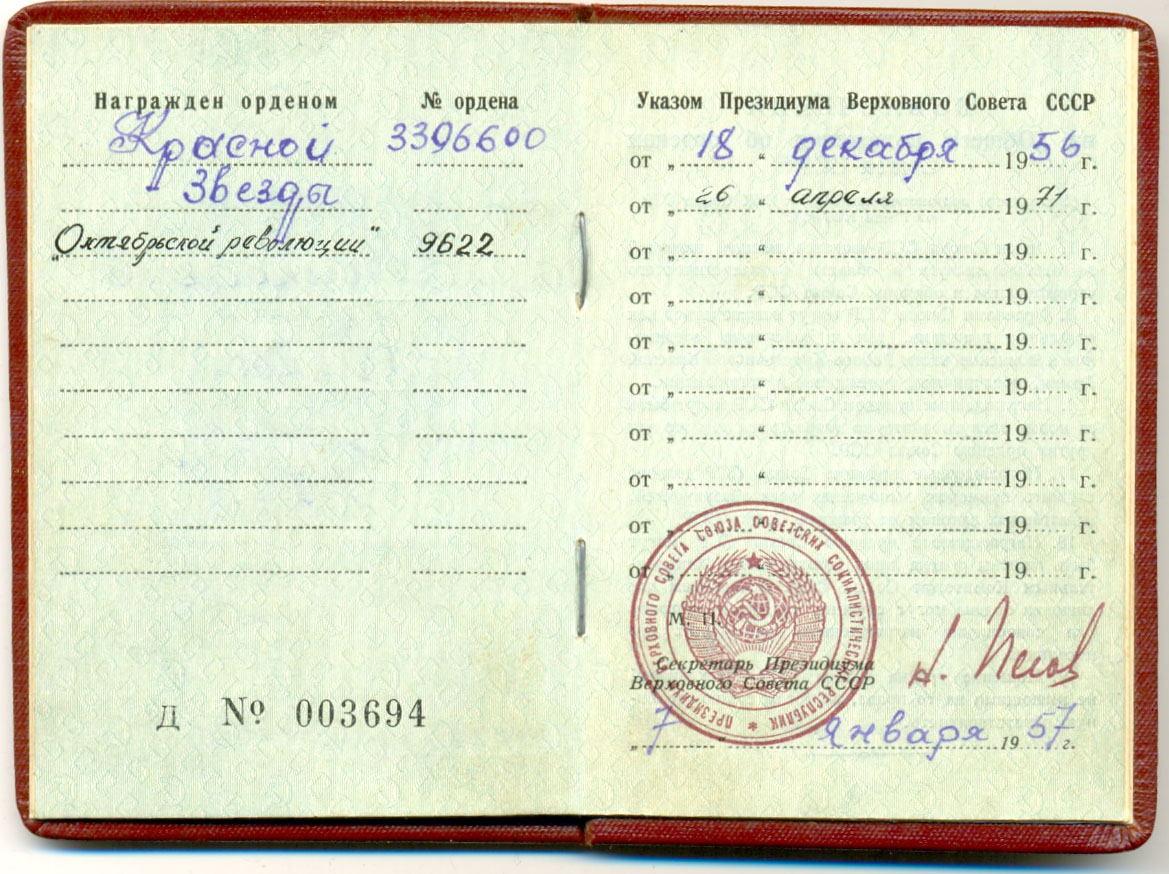 Награжден орденом № ордена
Красной 3396600
Звезды
„Октябрьской революции" 9622
Д № 003694
Указом Президиума Верховного Совета СССР
от „ 18 “ декабря 1956 г.
от „ 26 “ апреля 1971 г.
от „ “ 19 г.
от „ “ 19 г.
от „ “ 19 г.
от „ “ 19 г.
от „ “ 19 г.
от „ “ 19 г.
от „ “ 19 г.
от „ “ 19 г.
ПРЕЗИДИУМ ВЕРХОВНОГО СОВЕТА СОЮЗА СОВЕТСКИХ СОЦИАЛИСТИЧЕСКИХ РЕСПУБЛИК
М. П.
Секретарь Президиума
Верховного Совета СССР
„ 7 “ января 1957 г.